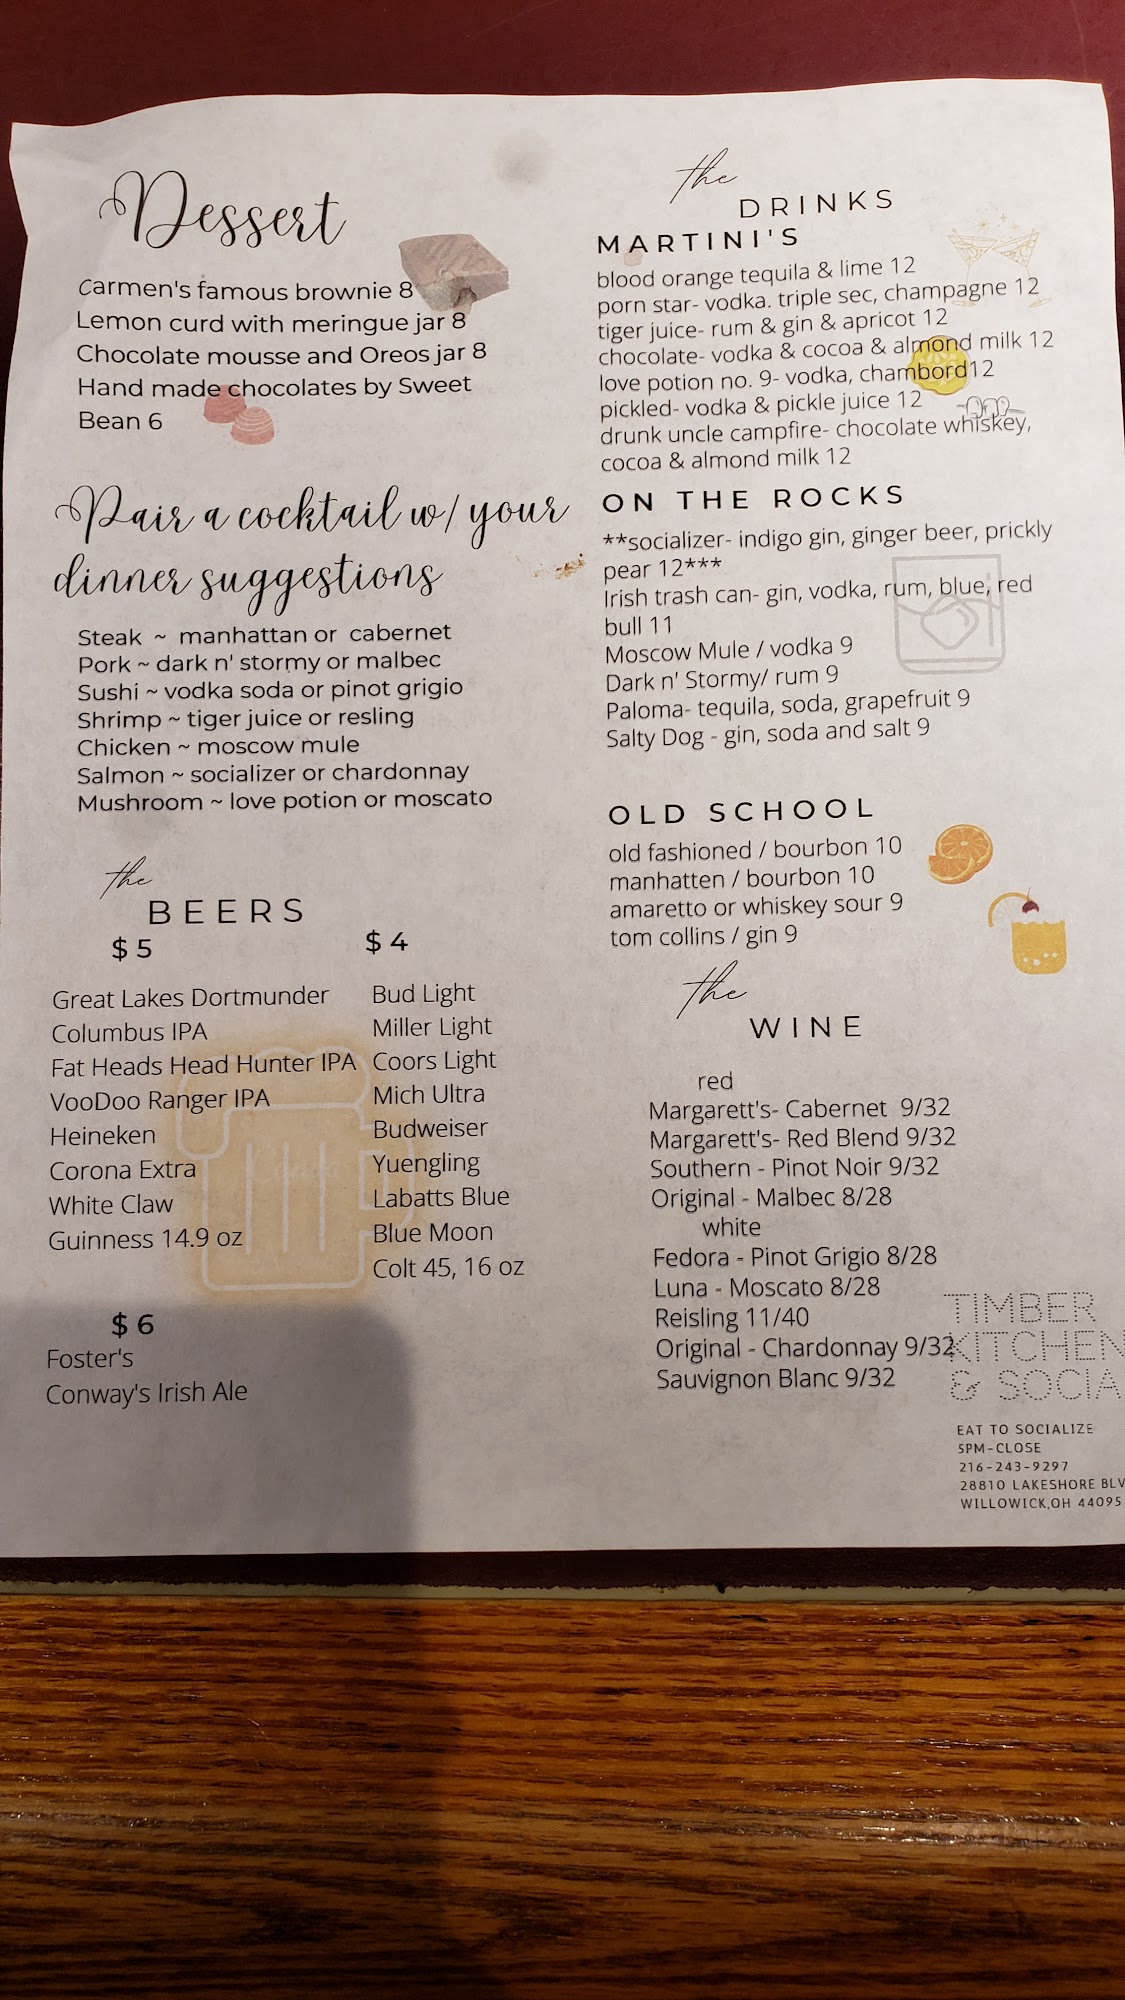 Dessert
Carmen's famous brownie 8
Lemon curd with meringue jar 8
Chocolate mousse and Oreos jar 8
Hand made chocolates by Sweet
Bean 6
Pair a cocktail w/ your
dinner suggestions
Steak ~ manhattan or cabernet
Pork ~ dark n' stormy or malbec
Sushi ~ vodka soda or pinot grigio
Shrimp ~ tiger juice or resling
Chicken ~ moscow mule
Salmon ~ socializer or chardonnay
Mushroom ~ love potion or moscato
the
BEERS
$5
Great Lakes Dortmunder
Columbus IPA
Fat Heads Head Hunter IPA
VooDoo Ranger IPA
Heineken
Corona Extra
White Claw
Guinness 14.9 oz
$4
Bud Light
Miller Light
Coors Light
Mich Ultra
Budweiser
Yuengling
Labatts Blue
Blue Moon
Colt 45, 16 oz
$6
Foster's
Conway's Irish Ale
the
DRINKS
MARTINI'S
blood orange tequila & lime 12
porn star- vodka. triple sec, champagne 12
tiger juice- rum & gin & apricot 12
chocolate- vodka & cocoa & almond milk 12
love potion no. 9- vodka, chambord12
pickled- vodka & pickle juice 12
drunk uncle campfire- chocolate whiskey,
cocoa & almond milk 12
ON THE ROCKS
**socializer- indigo gin, ginger beer, prickly
pear 12***
Irish trash can- gin, vodka, rum, blue, red
bull 11
Moscow Mule / vodka 9
Dark n' Stormy/ rum 9
Paloma- tequila, soda, grapefruit 9
Salty Dog - gin, soda and salt 9
OLD SCHOOL
old fashioned / bourbon 10
manhatten / bourbon 10
amaretto or whiskey sour 9
tom collins / gin 9
the
WINE
red
Margarett's- Cabernet 9/32
Margarett's- Red Blend 9/32
Southern - Pinot Noir 9/32
Original - Malbec 8/28
white
Fedora - Pinot Grigio 8/28
Luna - Moscato 8/28
Reisling 11/40
Original - Chardonnay 9/32
Sauvignon Blanc 9/32
TIMBER
KITCHEN
& SOCIA
EAT TO SOCIALIZE
5PM-CLOSE
216-243-9297
28810 LAKESHORE BLV
WILLOWICK,OH 44095